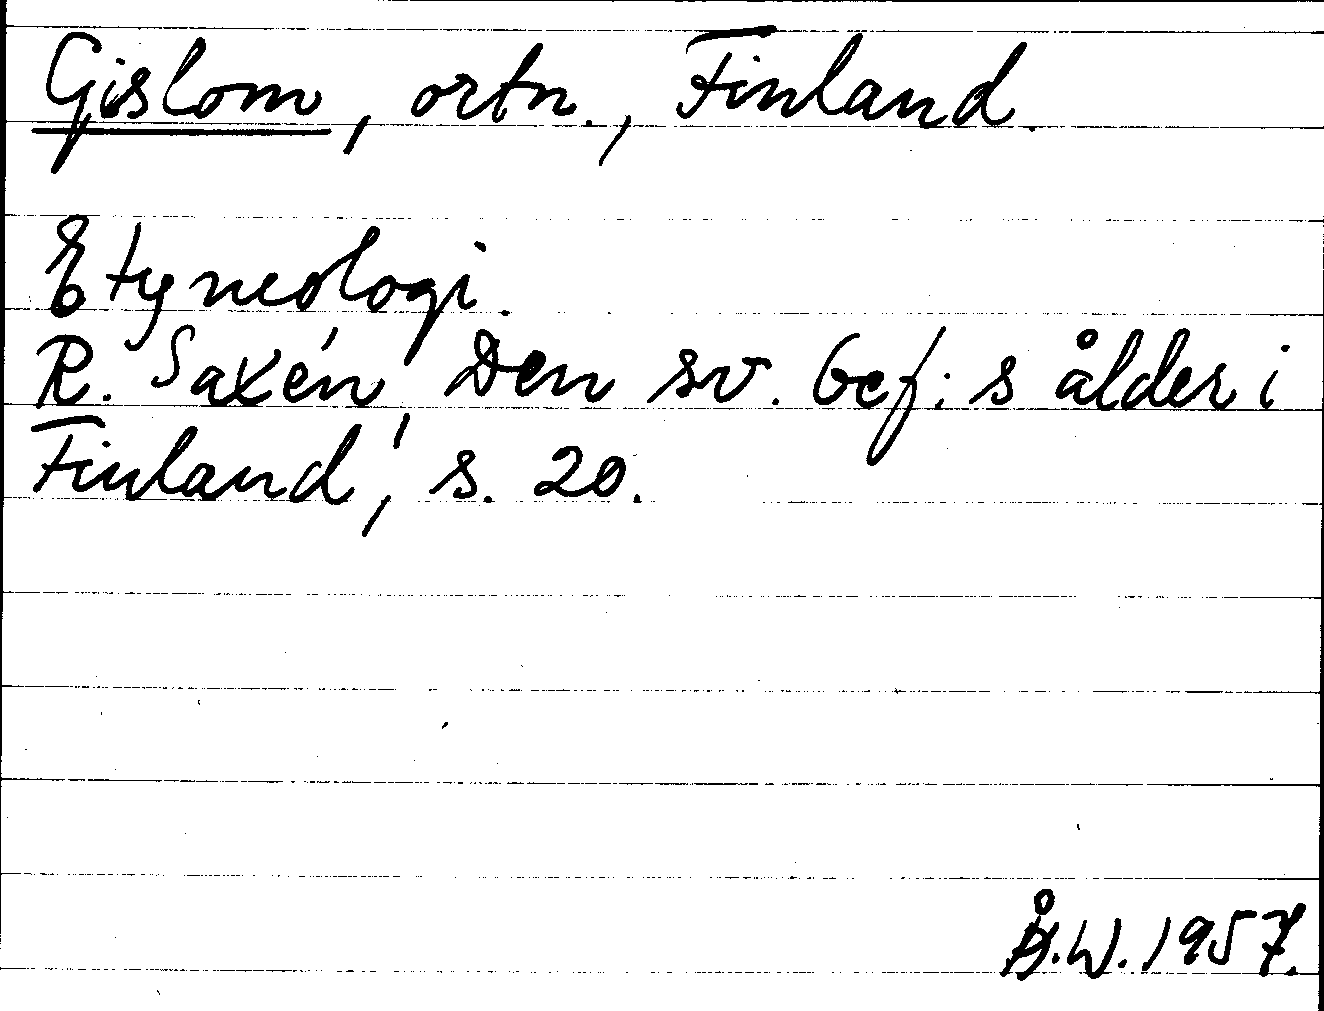 Gislom, ortn., Finland.
Etymologi.
R. Saxén, Den sv. bef:s ålder i
Finland, s. 20.
Å.W. 1957.